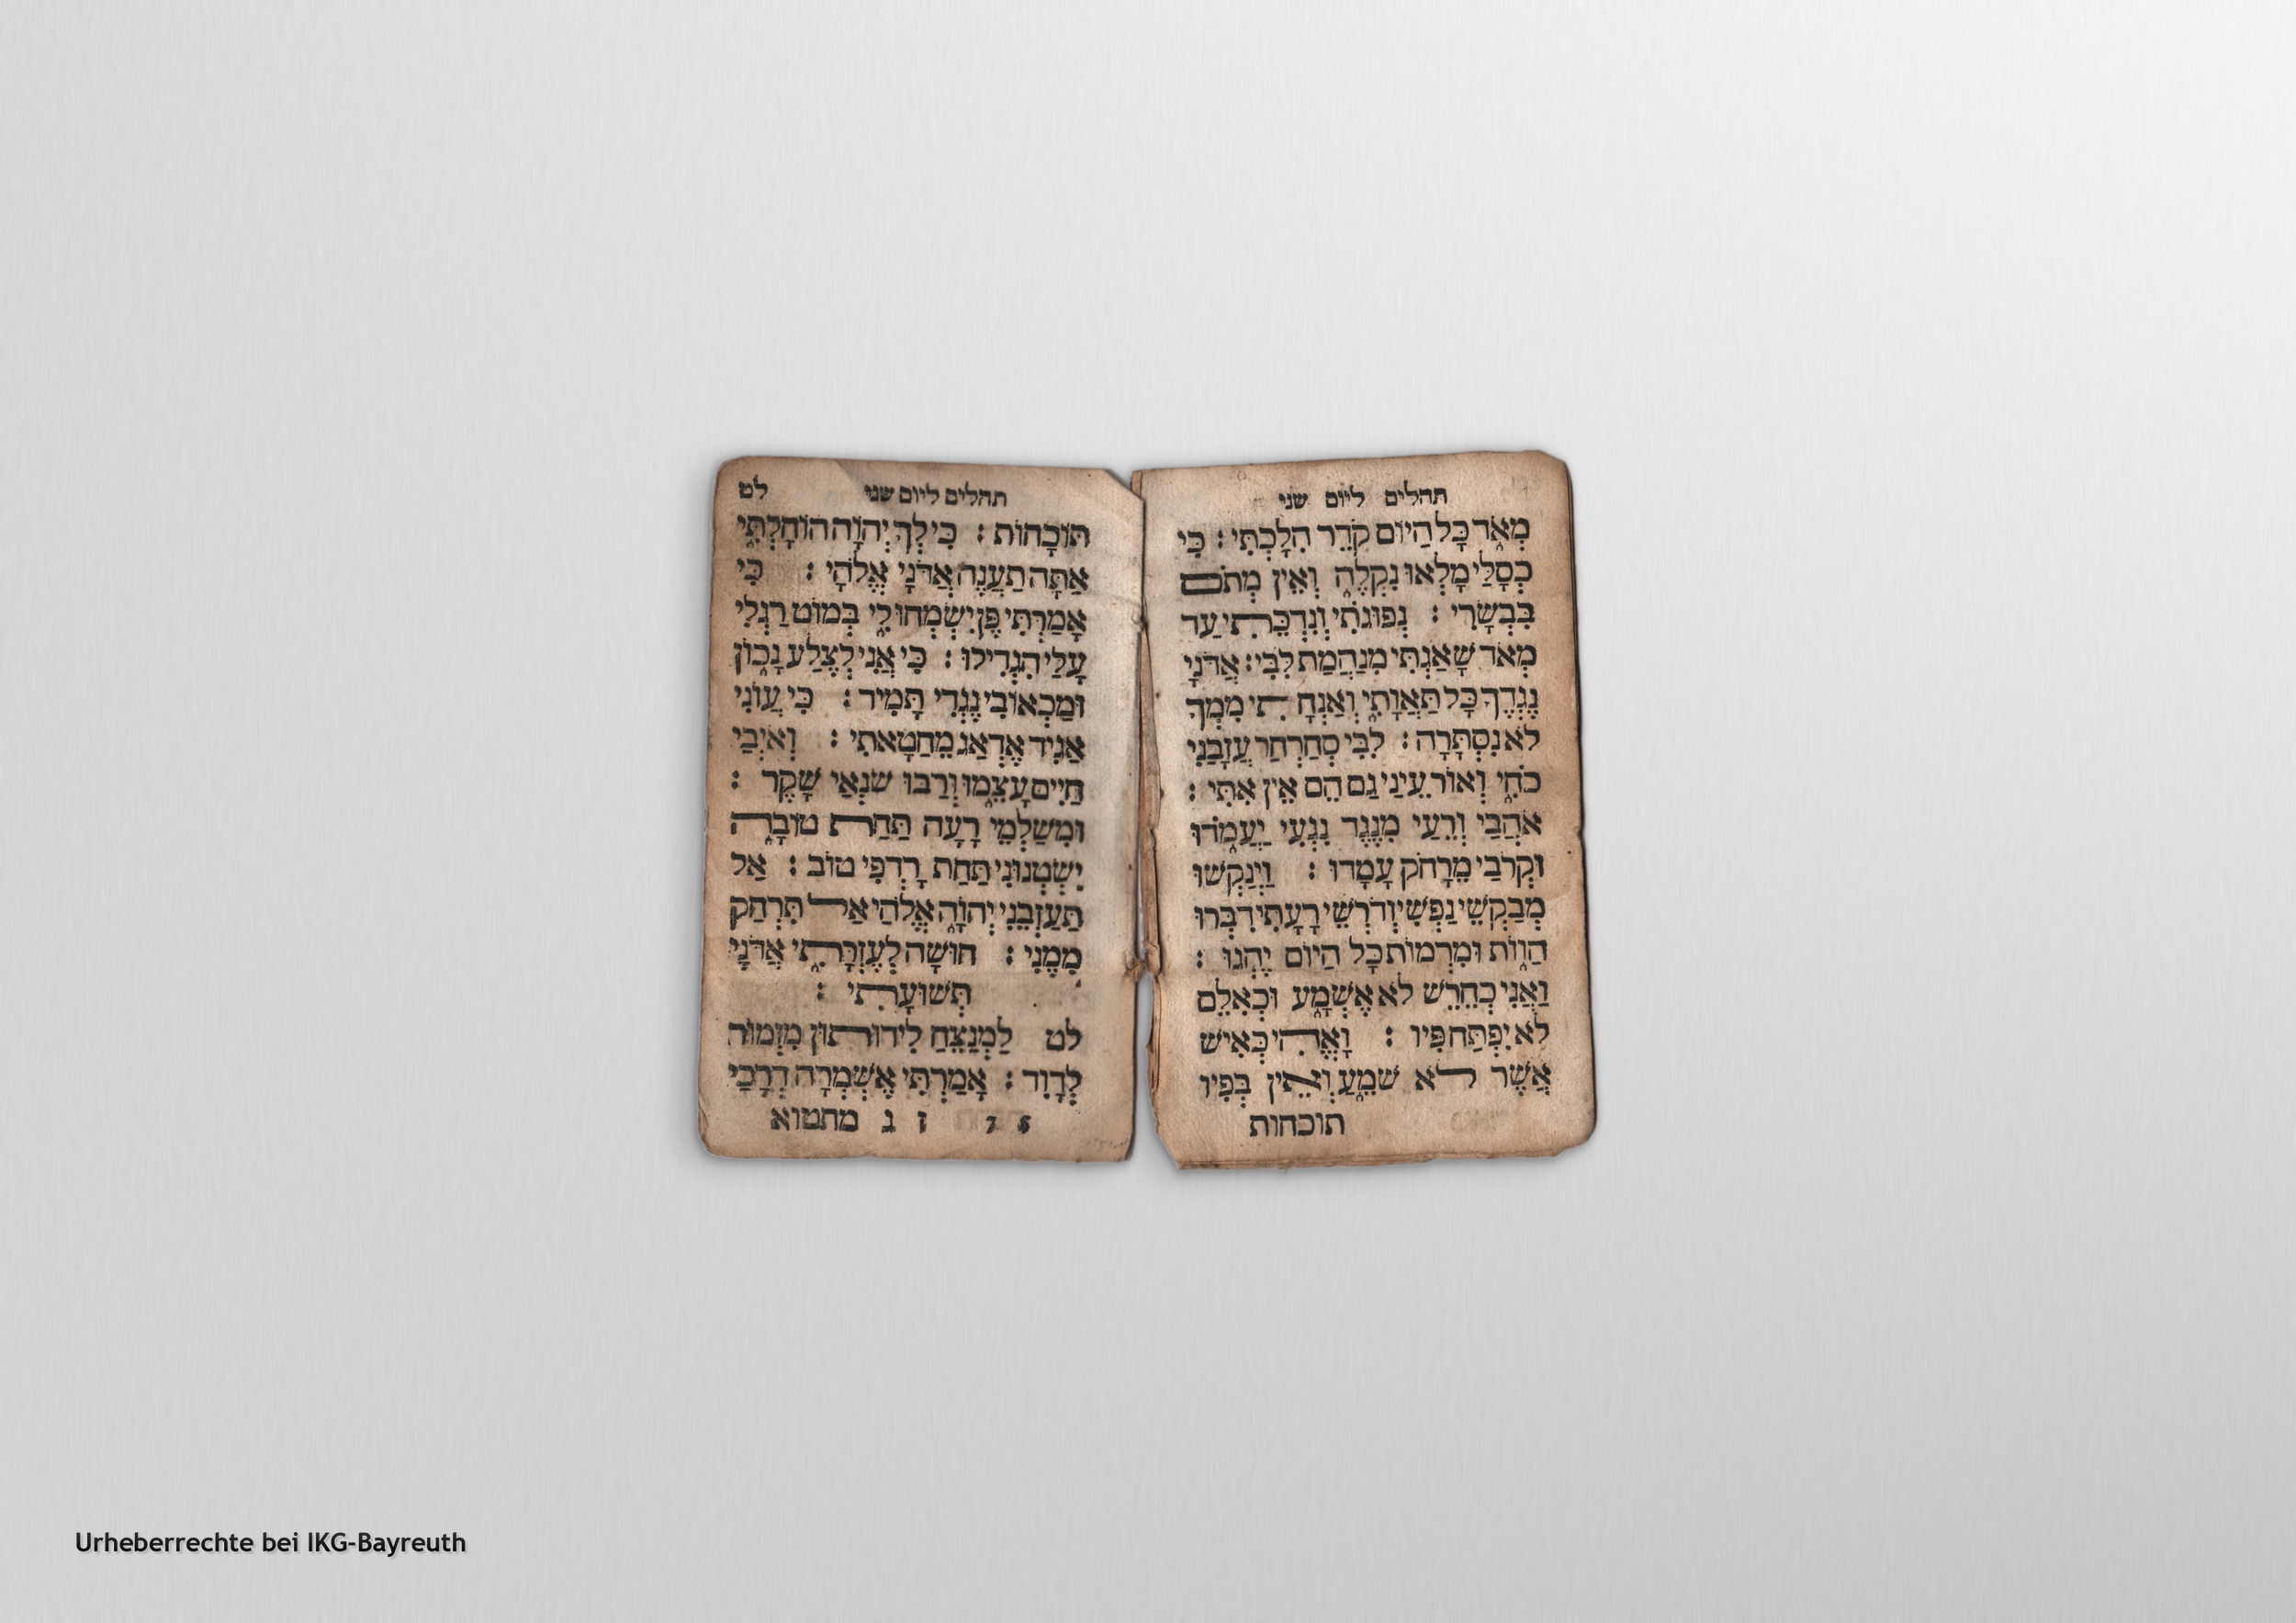 תהלים ליום שני
מְאֹד כָּל הַיּוֹם קֹדֵר הִלָּכְתִּי : כִּי
כְסָלַי מָלְאוּ נִקְלֶה וְאֵין מְתֹם
בִּבְשָׂרִי : נְפוּגֹתִי וְנִדְכֵּיתִי עַד
מְאֹד שָׁאַגְתִּי מִנַּהֲמַת לִבִּי : אֲדֹנָי
נֶגְדְּךָ כָל תַּאֲוָתִי וְאַנְחָתִי מִמְּךָ
לֹא נִסְתָּרָה : לִבִּי סְחַרְחַר עֲזָבַנִי
כֹחִי וְאוֹר עֵינַי גַם הֵם אֵין אִתִּי :
אֹהֲבַי וְרֵעַי מִנֶּגֶד נִגְעִי יַעֲמֹדוּ
וּקְרֹבַי מֵרָחֹק עָמָדוּ : וַיְנַקְשׁוּ
מְבַקְשֵׁי נַפְשִׁי וְדֹרְשֵׁי רָעָתִי דִּבְּרוּ
הַוּוֹת וּמִרְמוֹת כָּל הַיּוֹם יֶהְגּוּ :
וַאֲנִי כְחֵרֵשׁ לֹא אֶשְׁמָע וּכְאִלֵּם
לֹא יִפְתַּח פִּיו : וָאֱהִי כְּאִישׁ
אֲשֶׁר לֹא שֹׁמֵעַ וְאֵין בְּפִיו
תוכחות
תהלים ליום שני לט
תּוֹכָחוֹת : כִּי לְךָ יְהוָה הוֹחָלְתִּי
אַתָּה תַעֲנֶה אֲדֹנָי אֱלֹהָי : כִּי
אָמַרְתִּי פֶּן יִשְׂמְחוּ לִי בְּמוֹט רַגְלִי
עָלַי הִגְדִּילוּ : כִּי אֲנִי לְצֶלַע נָכוֹן
וּמַכְאוֹבִי נֶגְדִּי תָמִיד : כִּי עֲוֹנִי
אַגִּיד אֶדְאַג מֵחַטָּאתִי : וְאֹיְבַי
חַיִּים עָצֵמוּ וְרַבּוּ שֹׂנְאַי שָׁקֶר :
וּמְשַׁלְּמֵי רָעָה תַּחַת טוֹבָה
יִשְׂטְנוּנִי תַּחַת רָדְפִי טוֹב : אַל
תַּעַזְבֵנִי יְהוָה אֱלֹהַי אַל תִּרְחַק
מִמֶּנִּי : חוּשָׁה לְעֶזְרָתִי אֲדֹנָי
תְּשׁוּעָתִי :
לט לַמְנַצֵּחַ לִידוּתוּן מִזְמוֹר
לְדָוִד : אָמַרְתִּי אֶשְׁמְרָה דְרָכַי
ז ג מחטוא
Urheberrechte bei IKG-Bayreuth